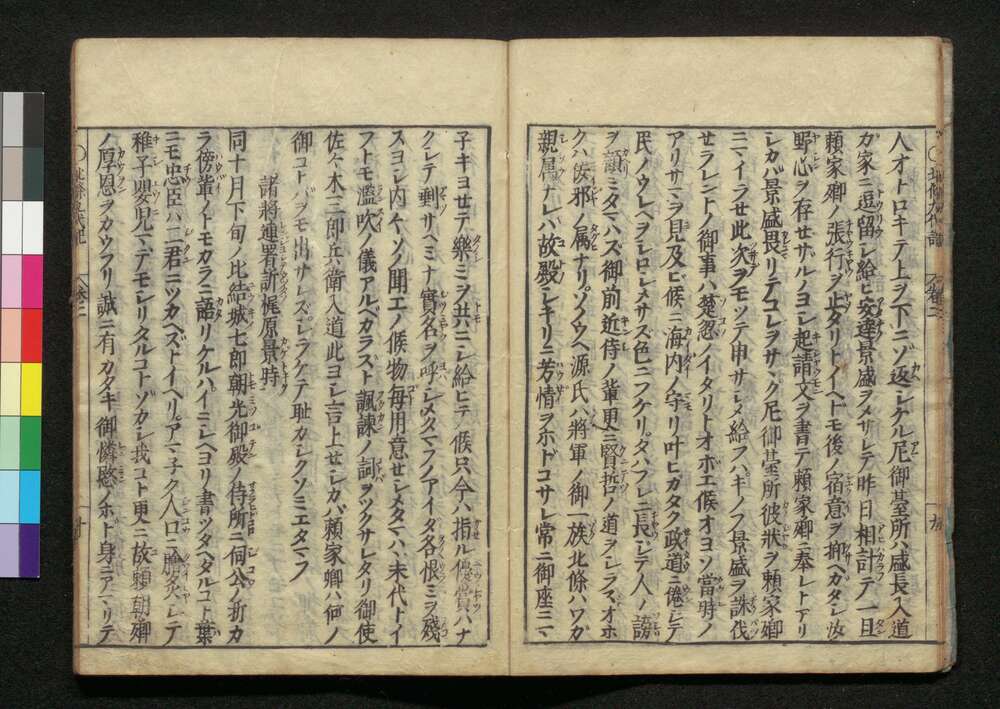 人オトロキテ上ヲ下ニゾ返シケル尼御䑓所ハ盛長入道
カ家ニ逗留シ給ヒ安達景盛ヲメサレテ昨日相計テ一旦
頼家卿ノ張行ヲ止タリトイヘドモ後ノ宿意ヲ抑ヘガタシ汝
野心ヲ存セサルノヨシ起請文ヲ書テ頼家卿ニ奉レトアリ
シカバ景盛畏リテコレヲサヽク尼御䑓所彼狀ヲ頼家卿
ニマイラせ此次ヲモツテ申サシメ給フハキノフ景盛ヲ誅伐
せラレントノ御事ハ楚忽ノイタリトオボエ候オヨソ當時ノ
アリサマヲ見及ヒ候ニ海内ノ守リ叶ヒガタク政道ニ倦シテ
民ノウレヘヲシロシメサス色ニフケリタハフレニ長シテ人ノ謗
ヲ顧ミタマハズ御前近侍ノ輩更ニ賢哲ノ道ヲシラズオホ
クハ佞邪ノ属ナリソノウヘ源氏ハ將軍ノ御一族北條ハワガ
親属ナレバ故殿シキリニ芳情ヲホドコサレ常ニ御座ニマ
子キヨせテ樂ミヲ共ニシ給ヒテ候只今ハ指ル優賞ハナ
クシテ剰サヘミナ實名ヲ呼シメタマフノアイタ各恨ミヲ殘
スヨシ内々ソノ聞エノ候物毎用意せシメタマハヽ末代トイ
フトモ濫吹ノ儀アルベカラスト諷諫ノ詞ヲツクサレタリ御使
佐々木三郎兵衛入道此ヨシ言上せシカバ頼家卿ハ何ノ
御コトバヲモ出サレズシラケテ恥カシクソミエタマフ
諸將連署訴梶原景時
同十月下旬ノ比結城七郎朝光御殿ノ侍所ニ伺公ノ折カ
ラ傍輩ノトモカラニ語リケルハイニシヘヨリ書ツタヘタルコト葉
ニモ忠臣ハ二君ニツカヘズトイヘリアマ子ク人口ニ膾炙シテ
稚子嬰児マデモシリタルコトゾカシ我コト更ニ故頼朝卿
ノ厚恩ヲカウフリ誠ニ有カタキ御憐愍ノホド身ニアマリテ